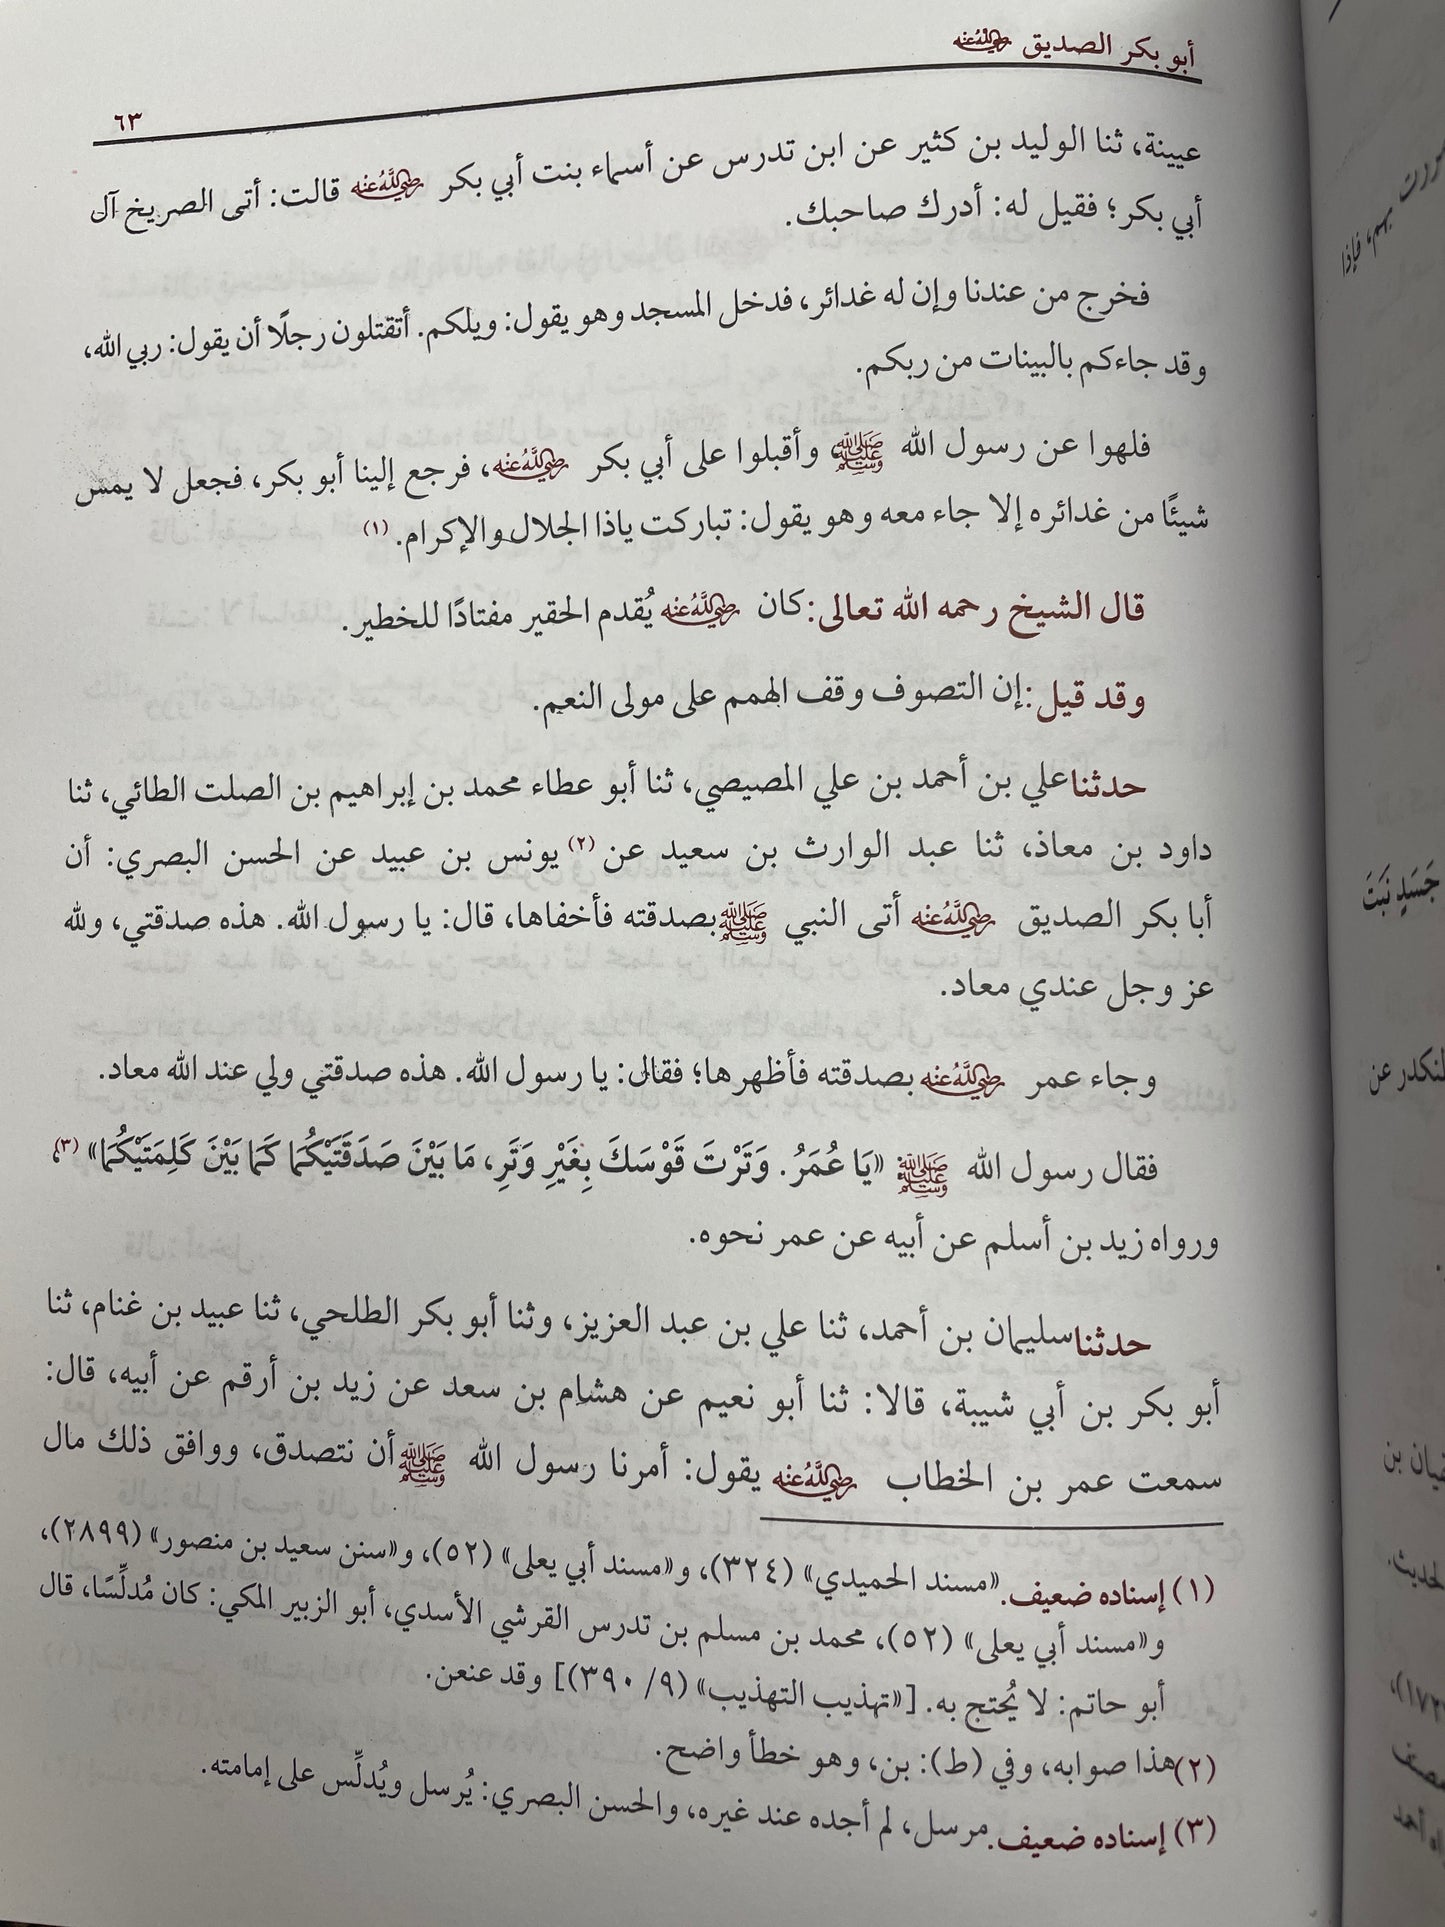 أبو بكر الصديق رضي الله عنه
٦٣
عيينة، ثنا الوليد بن كثير عن ابن تدرس عن أسماء بنت أبي بكر رضي الله عنه قالت: أتى الصريخ آل
أبي بكر؛ فقيل له: أدرك صاحبك.
فخرج من عندنا وإن له غدائر، فدخل المسجد وهو يقول: ويلكم. أتقتلون رجلًا أن يقول: ربي الله،
وقد جاءكم بالبينات من ربكم.
فلهوا عن رسول الله ﷺ وأقبلوا على أبي بكر رضي الله عنه، فرجع إلينا أبو بكر، فجعل لا يمس
شيئًا من غدائره إلا جاء معه وهو يقول: تباركت ياذا الجلال والإكرام. (١)
قال الشيخ رحمه الله تعالى: كان رضي الله عنه يُقدم الحقير مفتادًا للخطير.
وقد قيل: إن التصوف وقف الهمم على مولى النعم.
حدثنا علي بن أحمد بن علي المصيصي، ثنا أبو عطاء محمد بن إبراهيم بن الصلت الطائي، ثنا
داود بن معاذ، ثنا عبد الوارث بن سعيد عن (٢) يونس بن عبيد عن الحسن البصري: أن
أبا بكر الصديق رضي الله عنه أتى النبي ﷺ بصدقته فأخفاها، قال: يا رسول الله. هذه صدقتي، ولله
عز وجل عندي معاد.
وجاء عمر رضي الله عنه بصدقته فأظهرها؛ فقال: يا رسول الله. هذه صدقتي ولي عند الله معاد.
فقال رسول الله ﷺ «يَا عُمَرُ. وَتَرْتَ قَوْسَكَ بِغَيْرِ وَتَرِ، مَا بَيْنَ صَدَقَتَيْكُمَا كَمَا بَيْنَ كَلِمَتَيْكُمَا» (٣)،
ورواه زيد بن أسلم عن أبيه عن عمر نحوه.
حدثنا سليمان بن أحمد، ثنا علي بن عبد العزيز، وثنا أبو بكر الطلحي، ثنا عبيد بن غنام، ثنا
أبو بكر بن أبي شيبة، قالا: ثنا أبو نعيم عن هشام بن سعد عن زيد بن أرقم عن أبيه، قال:
سمعت عمر بن الخطاب رضي الله عنه يقول: أمرنا رسول الله ﷺ أن نتصدق، ووافق ذلك مال
(١) إسناده ضعيف. «مسند الحميدي» (٣٢٤)، و«مسند أبي يعلى» (٥٢)، و«سنن سعيد بن منصور» (٢٨٩٩)،
و«مسند أبي يعلى» (٥٢)، محمد بن مسلم بن تدرس القرشي الأسدي، أبو الزبير المكي: كان مُدلِّسًا، قال
أبو حاتم: لا يُحتج به. [«تهذيب التهذيب» (٩/ ٣٩٠)] وقد عنعن.
(٢) هذا صوابه، وفي (ط): بن، وهو خطأ واضح.
(٣) إسناده ضعيف. مرسل، لم أجده عند غيره، والحسن البصري: يُرسل ويُدلِّس على إمامته.
فإذا
جَسَدٍ نَبَتَ
لنكدر عن